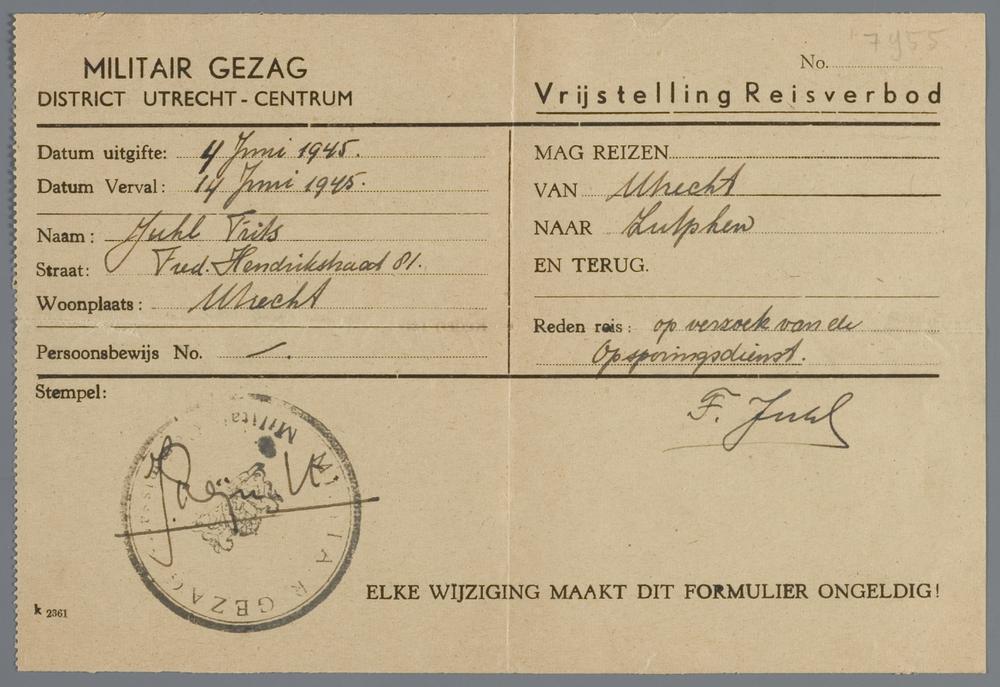 7955
No.
MILITAIR GEZAG
DISTRICT UTRECHT - CENTRUM
Vrijstelling Reisverbod
Datum uitgifte: 4 Juni 1945.
Datum Verval: 14 Juni 1945.
Naam: Juhl Frits
Straat: Fred. Hendrikstraat 81.
Woonplaats: Utrecht
Persoonsbewijs No. —.
MAG REIZEN
VAN Utrecht
NAAR Zutphen
EN TERUG.
Reden reis: op verzoek van de
Opsporingsdienst.
Stempel:
F. Juhl
Milita
MILITAIR GEZAG
ELKE WIJZIGING MAAKT DIT FORMULIER ONGELDIG!
k 2361